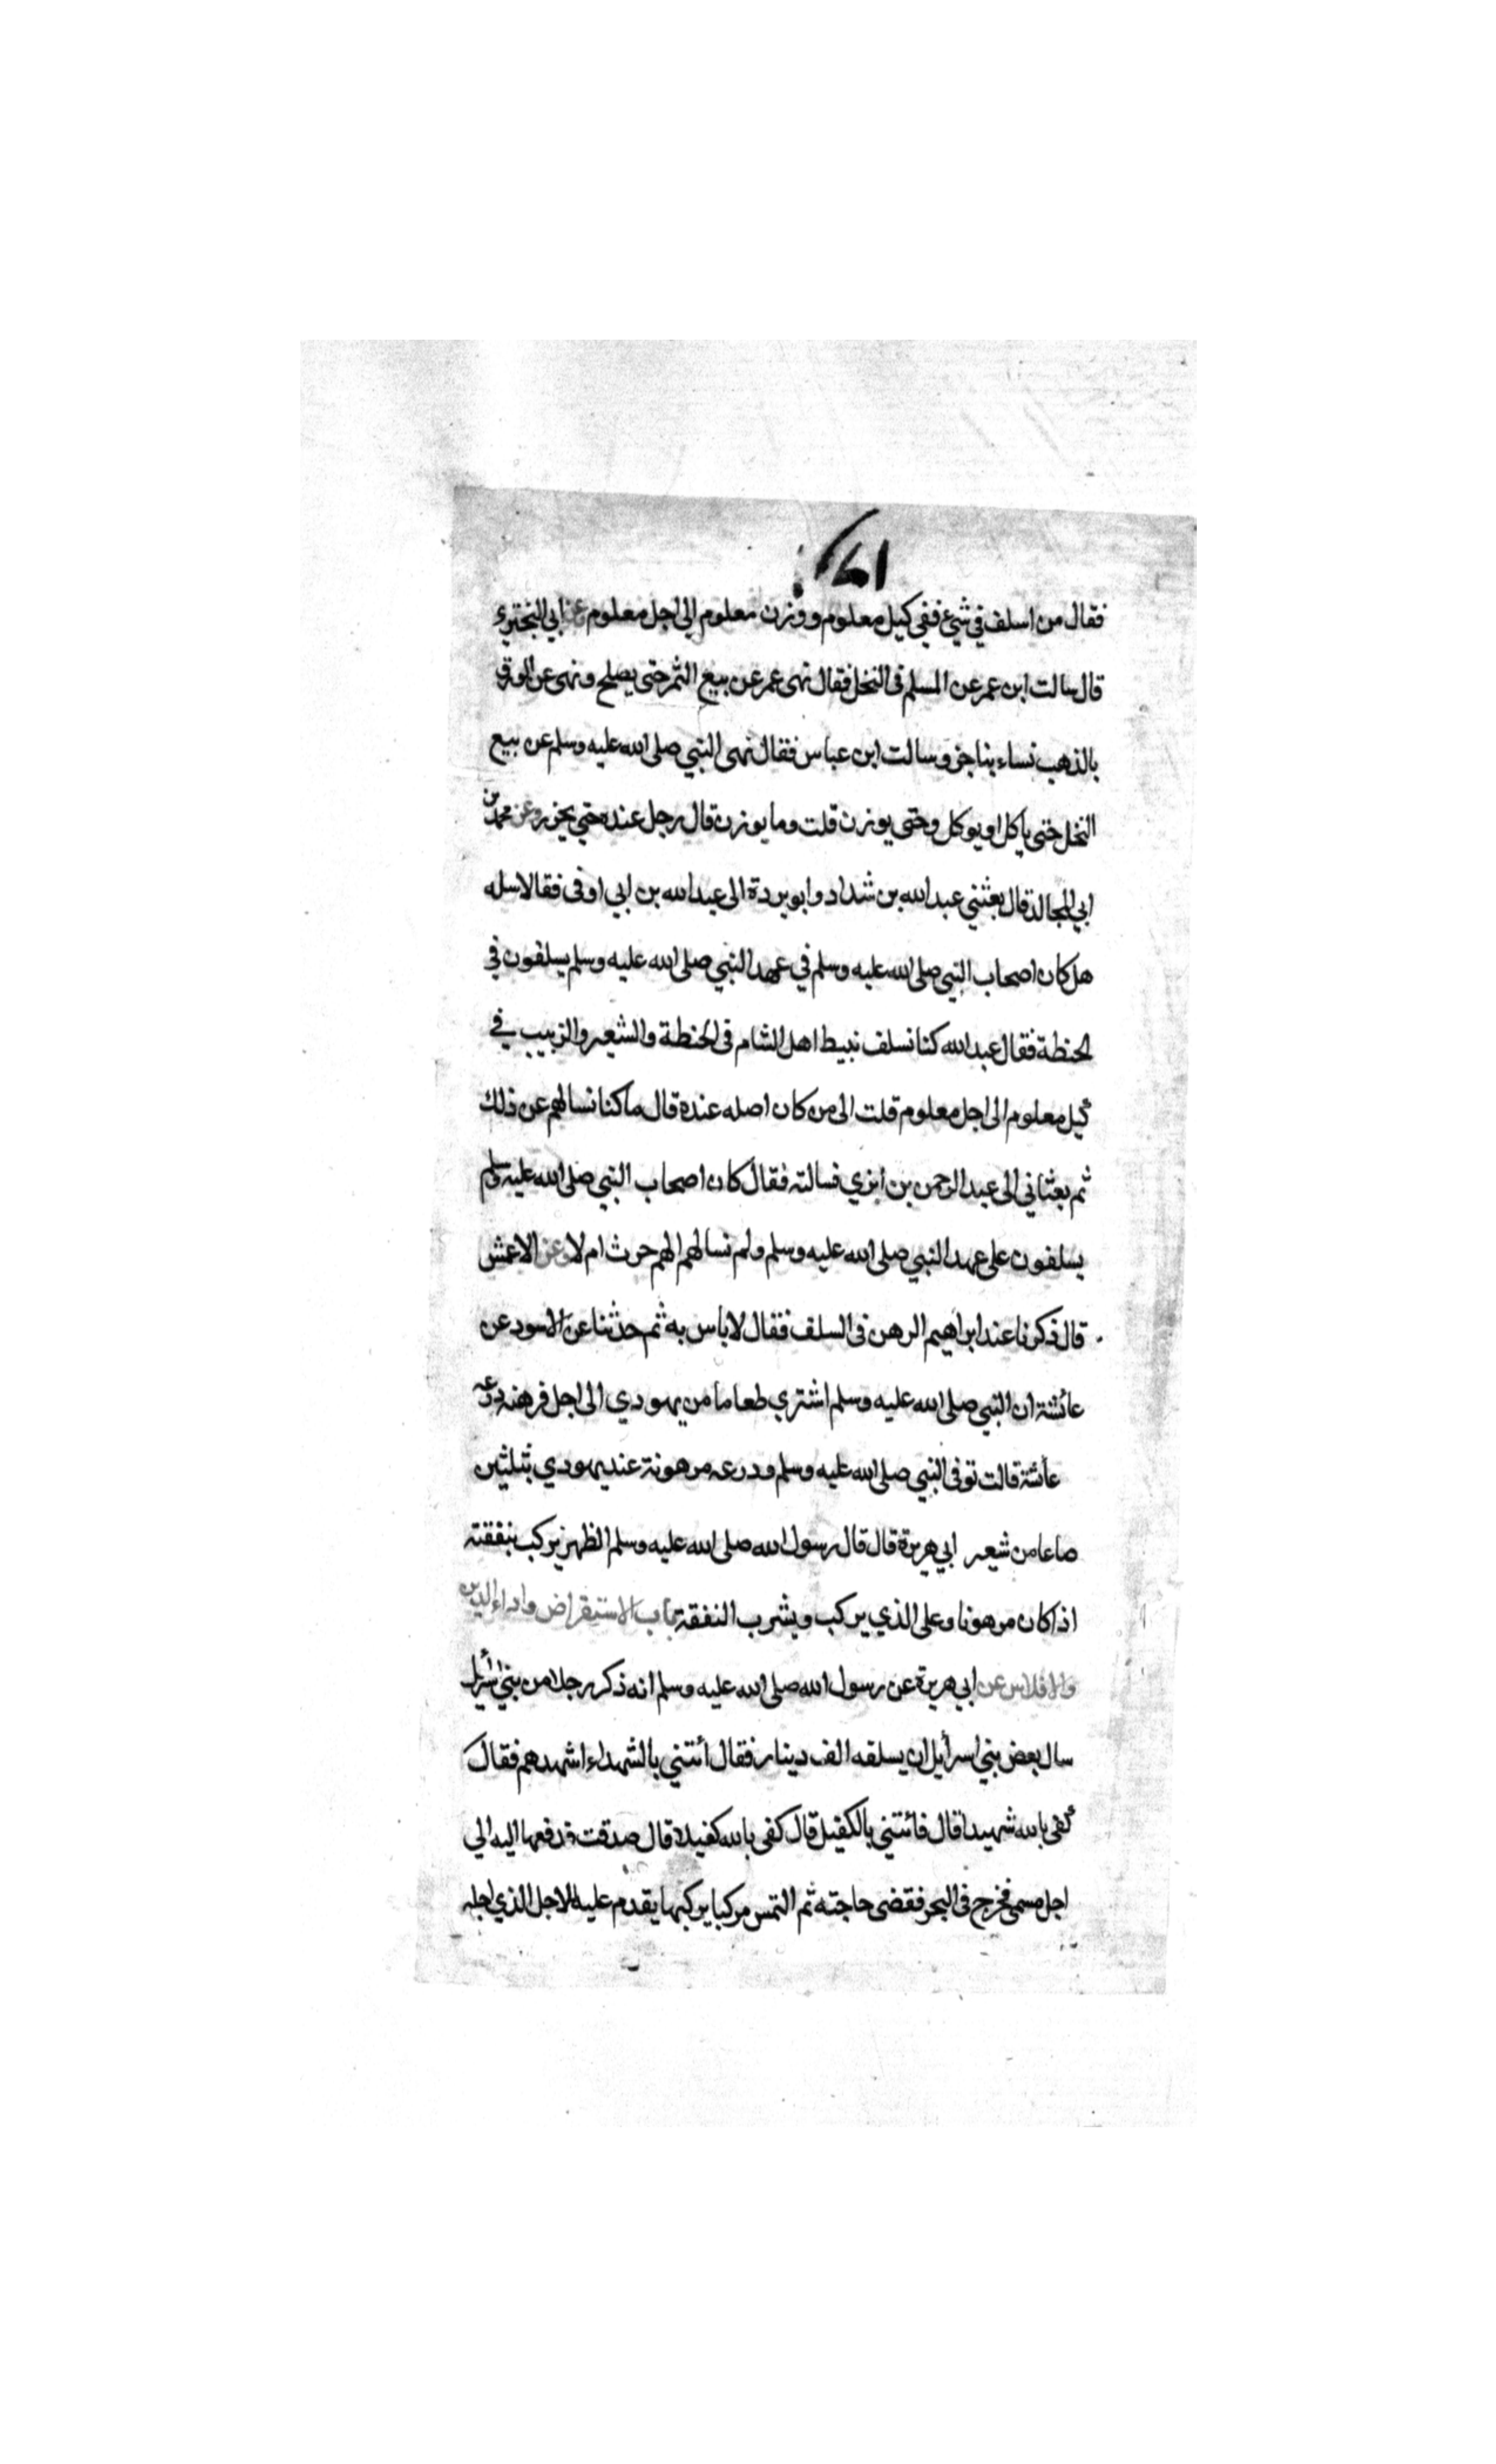 فقال من اسلف في شيء ففي كيل معلوم ووزن معلوم الى اجل معلوم عن ابي البختري
قال سالت ابن عمر عن السلم في النخل فقال نهى عمر عن بيع الثمر حتى يصلح ونهى عن الورق
بالذهب نساء بناجز وسالت ابن عباس فقال نهى النبي صلى الله عليه وسلم عن بيع
النخل حتى ياكل او يوكل وحتى يوزن قلت وما يوزن قال رجل عنده حتى يحزر وعن محمد بن
ابي المجالد قال بعثني عبد الله بن شداد وابو بردة الى عبد الله بن ابي اوفى فقالا سله
هل كان اصحاب النبي صلى الله عليه وسلم في عهد النبي صلى الله عليه وسلم يسلفون في
الحنطة فقال عبد الله كنا نسلف نبيط اهل الشام في الحنطة والشعير والزبيب في
كيل معلوم الى اجل معلوم قلت الى من كان اصله عنده قال ما كنا نسالهم عن ذلك
ثم بعثاني الى عبد الرحمن بن ابزي فسالته فقال كان اصحاب النبي صلى الله عليه وسلم
يسلفون على عهد النبي صلى الله عليه وسلم ولم نسالهم الهم حرث ام لا وعن الاعمش
قال ذكرنا عند ابراهيم الرهن في السلف فقال لا باس به ثم حدثنا عن الاسود عن
عائشة ان النبي صلى الله عليه وسلم اشتري طعاما من يهودي الى اجل فرهنه درعه
عائشة قالت توفى النبي صلى الله عليه وسلم ودرعه مرهونة عند يهودي بثلثين
صاعا من شعير ابي هريرة قال قال رسول الله صلى الله عليه وسلم الظهر يركب بنفقته
اذا كان مرهونا وعلى الذي يركب ويشرب النفقة باب الاستقراض واداء الدين
والافلاس عن ابي هريرة عن رسول الله صلى الله عليه وسلم انه ذكر رجلا من بني اسرائيل
سال بعض بني اسرائيل ان يسلفه الف دينار فقال ائتني بالشهداء اشهدهم فقال
كفى بالله شهيدا قال فائتني بالكفيل قال كفى بالله كفيلا قال صدقت فدفعها اليه الي
اجل مسمى فخرج في البحر فقضى حاجته ثم التمس مركبا يركبها يقدم عليه للاجل الذي اجله